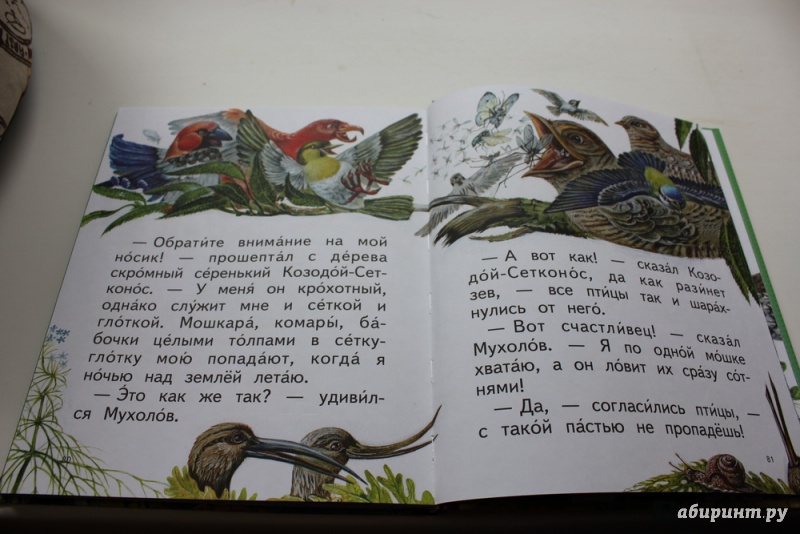 — Обрати́те внима́ние на мой
но́сик! — прошепта́л с де́рева
скро́мный се́ренький Козодо́й-Сет-
коно́с. — У меня́ он кро́хотный,
одна́ко слу́жит мне и се́ткой и
гло́ткой. Мошкара́, комары́, ба́-
бочки це́лыми то́лпами в се́тку-
гло́тку мою́ попада́ют, когда́ я
но́чью над землёй лета́ю.
— Э́то как же так? — удиви́л-
ся Мухоло́в.
80
— А вот как! — сказа́л Козо-
до́й-Сетконо́с, да как рази́нет
зев, — все пти́цы так и шара́х-
нулись от него́.
— Вот счастли́вец! — сказа́л
Мухоло́в. — Я по одно́й мо́шке
хвата́ю, а он ло́вит их сра́зу со́т-
нями!
— Да, — согласи́лись пти́цы, —
с тако́й па́стью не пропадёшь!
81
абиринт.ру